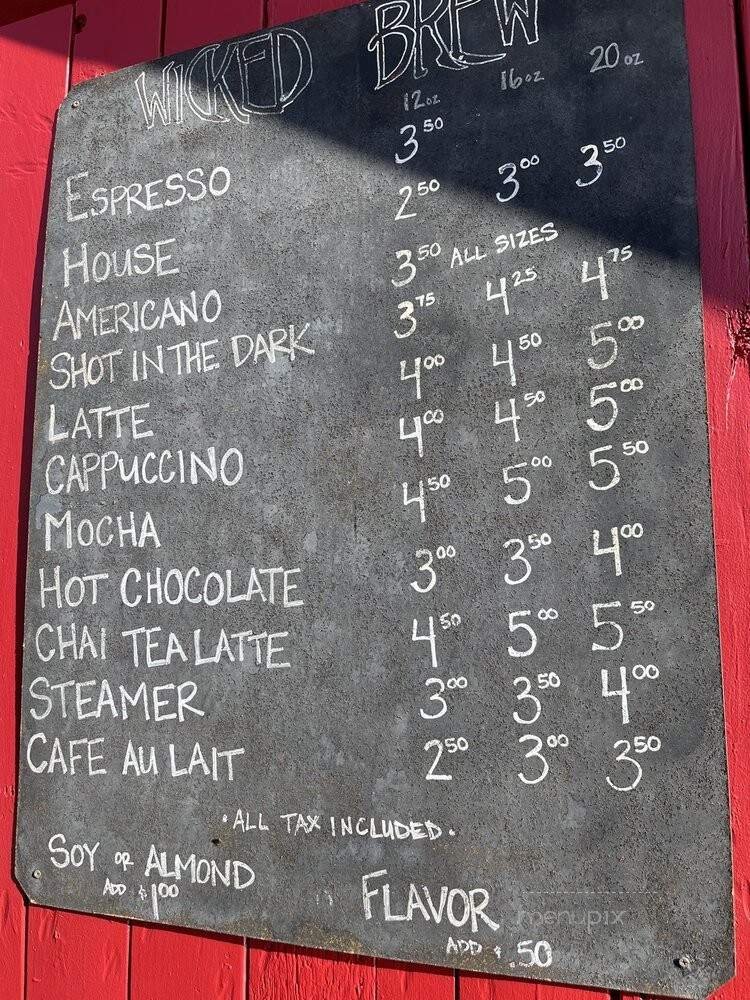 WICKED BREW
12oz 16oz 20oz
ESPRESSO 3 50
HOUSE 2 50 3 00 3 50
AMERICANO 3 50 ALL SIZES
SHOT IN THE DARK 3 75 4 25 4 75
LATTE 4 00 4 50 5 00
CAPPUCCINO 4 00 4 50 5 00
MOCHA 4 50 5 00 5 50
HOT CHOCOLATE 3 00 3 50 4 00
CHAI TEA LATTE 4 50 5 00 5 50
STEAMER 3 00 3 50 4 00
CAFE AU LAIT 2 50 3 00 3 50
·ALL TAX INCLUDED·
SOY OR ALMOND
ADD $1 00
FLAVOR
ADD $.50
menupix